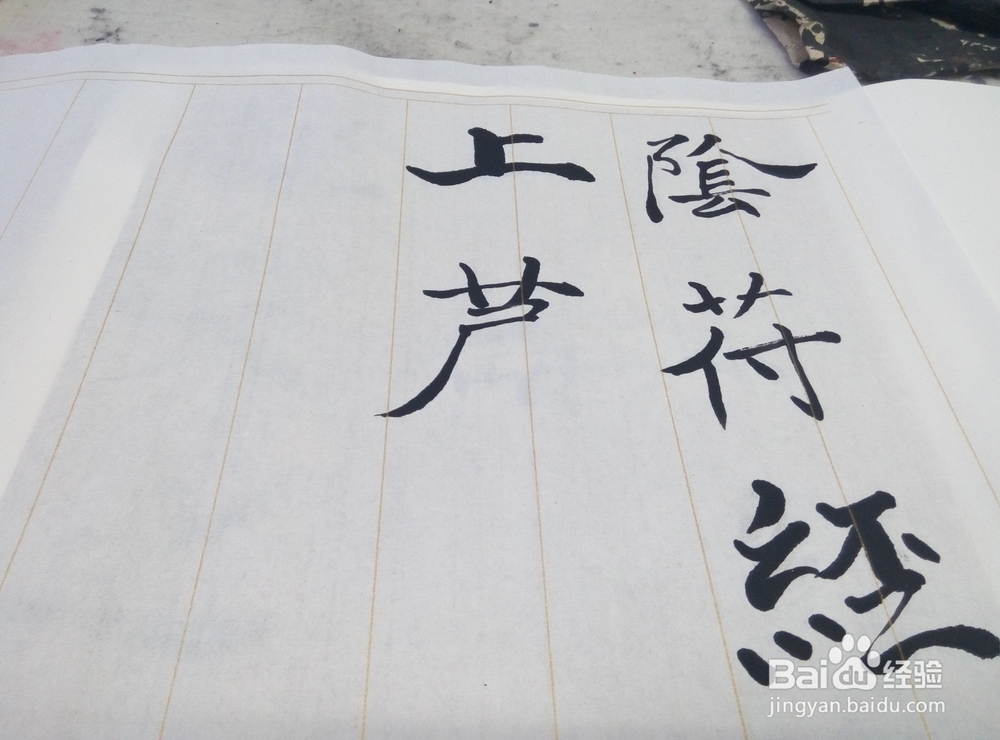 陰苻經
上芦
Baidu 经验
jingyan.baidu.com